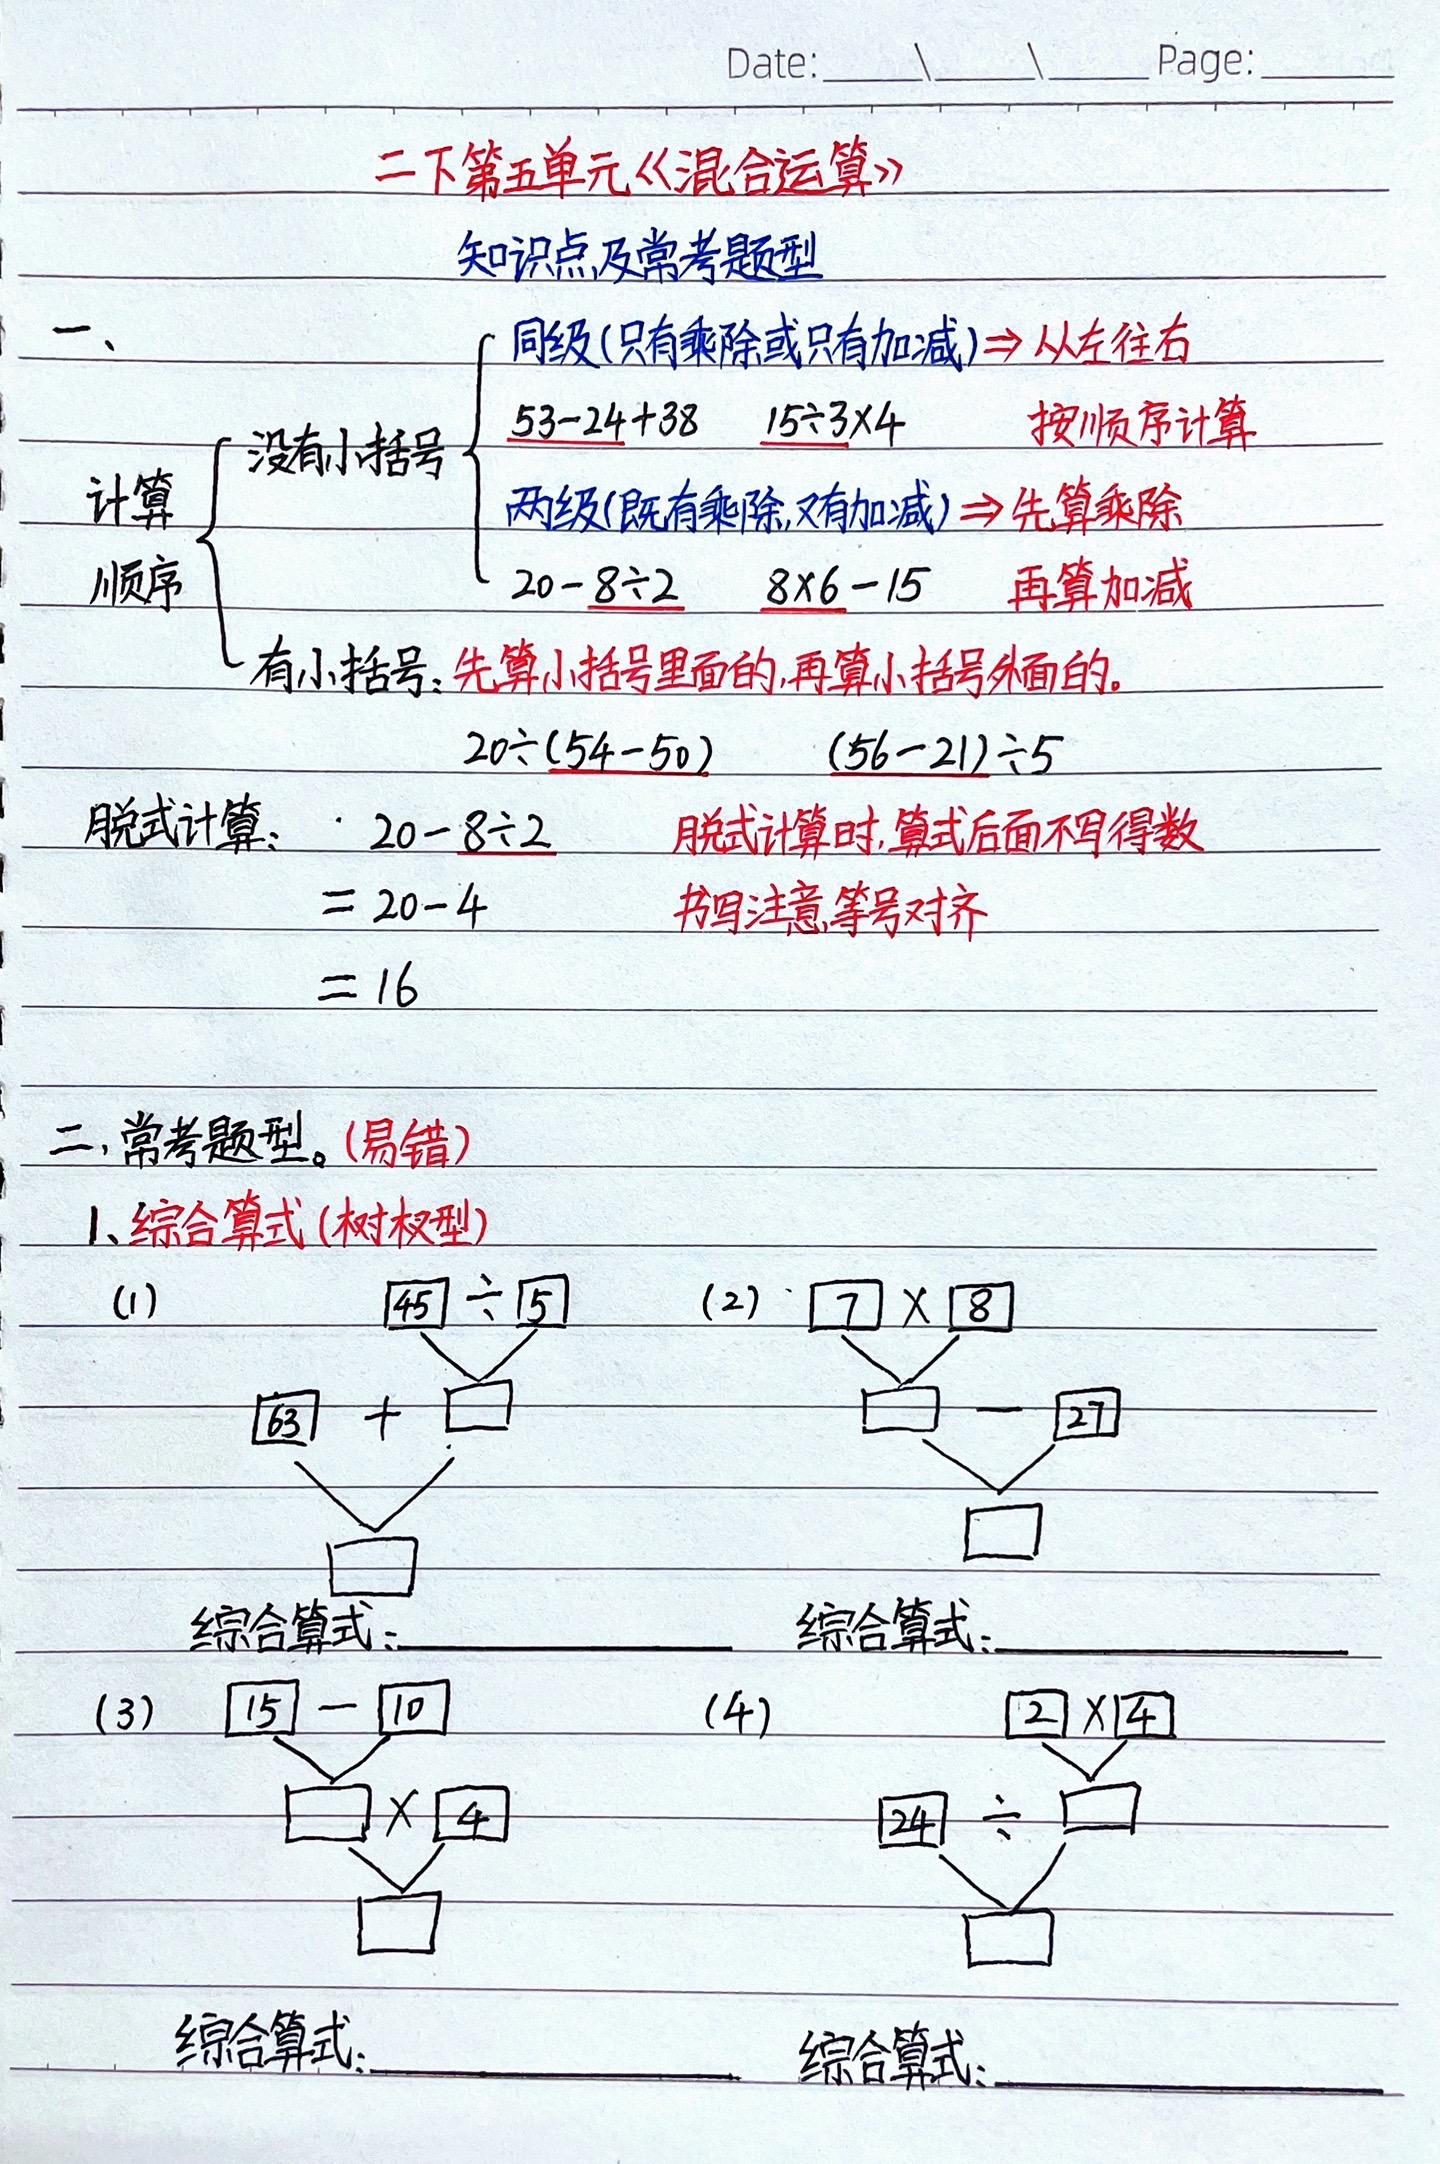 Date:____\____\____Page:____
二下第五单元《混合运算》
知识点及常考题型
一、
同级(只有乘除或只有加减)⇒从左往右
53-24+38 15÷3×4 按顺序计算
没有小括号
计算
两级(既有乘除,又有加减)⇒先算乘除
顺序
20-8÷2 8×6-15 再算加减
有小括号:先算小括号里面的,再算小括号外面的。
20÷(54-50) (56-21)÷5
脱式计算: 20-8÷2 脱式计算时,算式后面不写得数
=20-4 书写注意,等号对齐
=16
二、常考题型。(易错)
1、综合算式(树杈型)
(1) 45 ÷ 5 (2) 7 × 8
63 + - 27
综合算式:____ 综合算式:____
(3) 15 - 10 (4) 2 × 4
× 4 24 ÷
综合算式:____ 综合算式:____